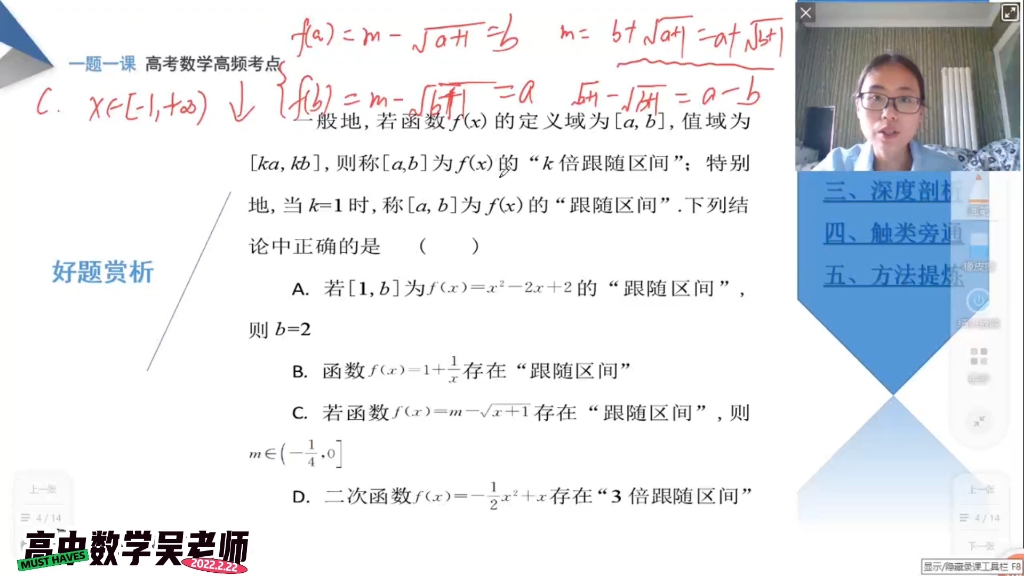 f(a) = m - √(a+1) = b
m = b+√(a+1) = a+√(b+1)
一题一课 高考数学高频考点
C. x∈[-1,+∞) ↓
f(b) = m - √(b+1) = a
√(b+1) - √(a+1) = a - b
一般地,若函数f(x)的定义域为[a,b],值域为
[ka,kb],则称[a,b]为f(x)的“k倍跟随区间”;特别
地,当k=1时,称[a,b]为f(x)的“跟随区间”.下列结
论中正确的是 ( )
好题赏析
A. 若[1,b]为f(x)=x²-2x+2的“跟随区间”,
则b=2
B. 函数f(x)=1+1/x存在“跟随区间”
C. 若函数f(x)=m-√(x+1)存在“跟随区间”,则
m∈(-1/4,0]
D. 二次函数f(x)=-1/2x²+x存在“3倍跟随区间”
三、深度剖析
四、触类旁通
五、方法提炼
上一张
4/14
高中数学吴老师
MUST HAVES
2022.2.22
上一张
4/14
下一张
显示/隐藏录课工具栏 F8